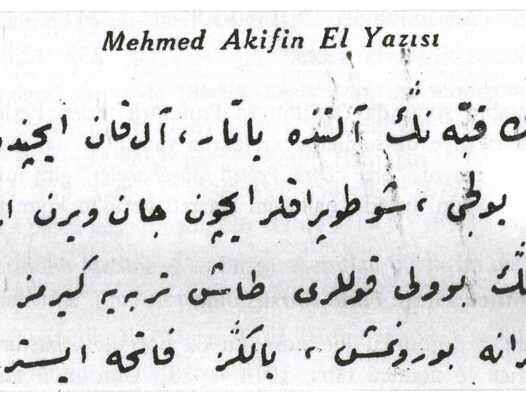 Mehmed Akifin El Yazısı
ك قبّه نڭ آلتنده ياتار، آل قان ايچينده
يولجى، شو طوپراقلر ايچون جان ويرن ا
ڭ بو ولى قوللرى طاش تربه يه كيرمز
رانه بورونمش، يالڭز فاتحه ايستر